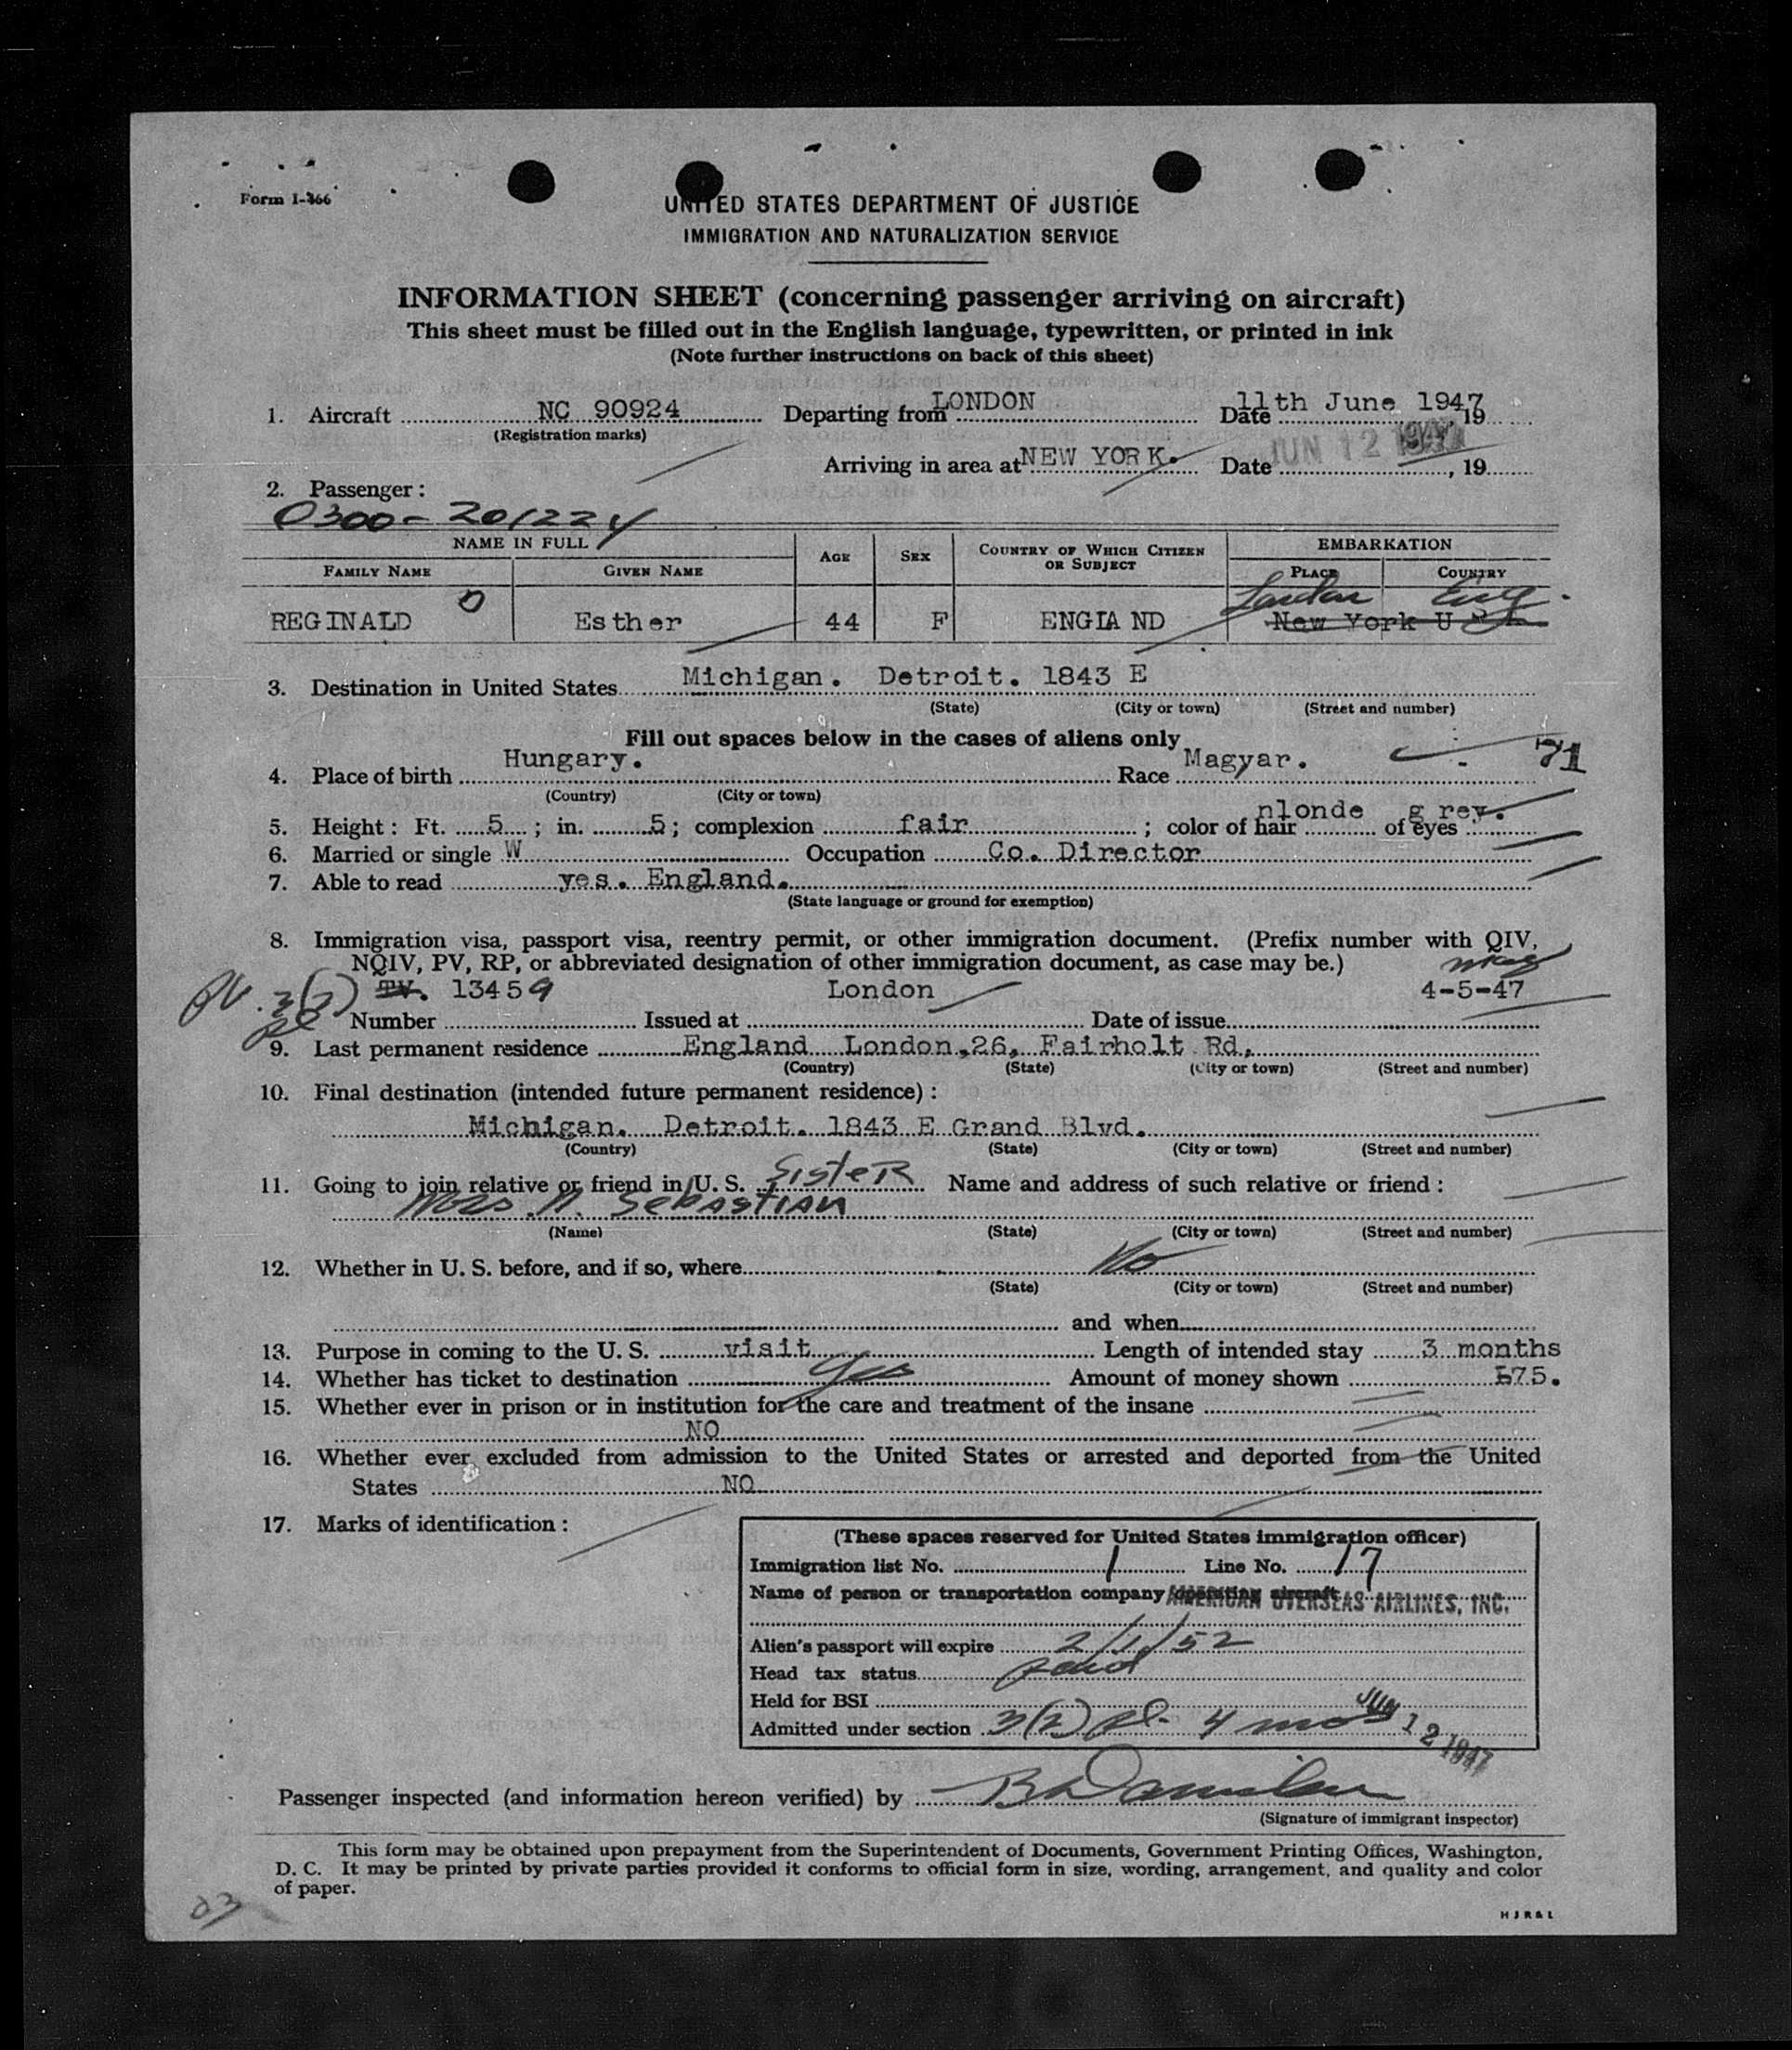 Form I-466
UNITED STATES DEPARTMENT OF JUSTICE
IMMIGRATION AND NATURALIZATION SERVICE
INFORMATION SHEET (concerning passenger arriving on aircraft)
This sheet must be filled out in the English language, typewritten, or printed in ink
(Note further instructions on back of this sheet)
1. Aircraft NC 90924 Departing from LONDON Date 11th June 1947, 19
(Registration marks)
Arriving in area at NEW YORK. Date JUN 12 1947, 19
2. Passenger:
0300-201224
NAME IN FULL AGE SEX COUNTRY OF WHICH CITIZEN OR SUBJECT EMBARKATION
FAMILY NAME GIVEN NAME PLACE COUNTRY
London Eng.
REGINALD O Esther 44 F ENGLAND New York U
3. Destination in United States Michigan. Detroit. 1843 E
(State) (City or town) (Street and number)
Fill out spaces below in the cases of aliens only
4. Place of birth Hungary. Race Magyar. 71
(Country) (City or town)
5. Height: Ft. 5; in. 5; complexion fair; color of hair nlonde of eyes grey.
6. Married or single W Occupation Co. Director
7. Able to read yes. England.
(State language or ground for exemption)
8. Immigration visa, passport visa, reentry permit, or other immigration document. (Prefix number with QIV,
NQIV, PV, RP, or abbreviated designation of other immigration document, as case may be.)
PV. 3(2) TV. 13459 London 4-5-47
Number Issued at Date of issue
9. Last permanent residence England London, 26, Fairholt Rd,
(Country) (State) (City or town) (Street and number)
10. Final destination (intended future permanent residence):
Michigan. Detroit. 1843 E Grand Blvd.
(Country) (State) (City or town) (Street and number)
11. Going to join relative or friend in U. S. SISTER Name and address of such relative or friend:
MRS. N. SEBASTIAN
(Name) (State) (City or town) (Street and number)
12. Whether in U. S. before, and if so, where No
(State) (City or town) (Street and number)
and when
13. Purpose in coming to the U. S. visit Length of intended stay 3 months
14. Whether has ticket to destination Yes Amount of money shown £75.
15. Whether ever in prison or in institution for the care and treatment of the insane
NO
16. Whether ever excluded from admission to the United States or arrested and deported from the United
States NO
17. Marks of identification:
(These spaces reserved for United States immigration officer)
Immigration list No. 1 Line No. 17
Name of person or transportation company operating aircraft AMERICAN OVERSEAS AIRLINES, INC.
Alien's passport will expire 2/1/52
Head tax status paid
Held for BSI
Admitted under section 3(2) pl. 4 mos JUN 12 1947
Passenger inspected (and information hereon verified) by
(Signature of immigrant inspector)
This form may be obtained upon prepayment from the Superintendent of Documents, Government Printing Offices, Washington,
D. C. It may be printed by private parties provided it conforms to official form in size, wording, arrangement, and quality and color
of paper.
23
H J R & L